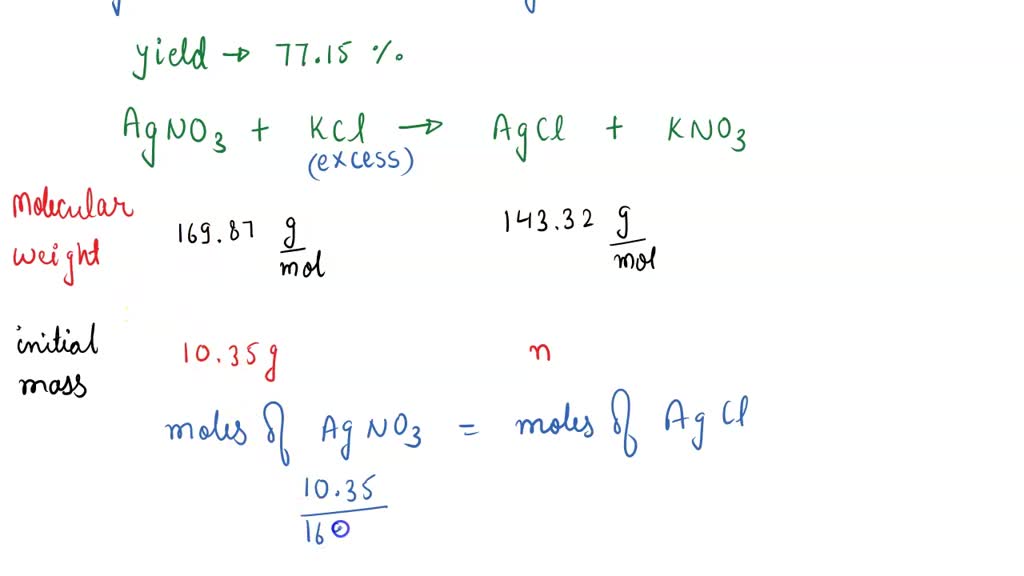 yield → 77.15 %
AgNO3 + KCl → AgCl + KNO3
(excess)
Molecular weight
169.87 g/mol
143.32 g/mol
initial mass
10.35g
n
moles of AgNO3 = moles of AgCl
10.35
16